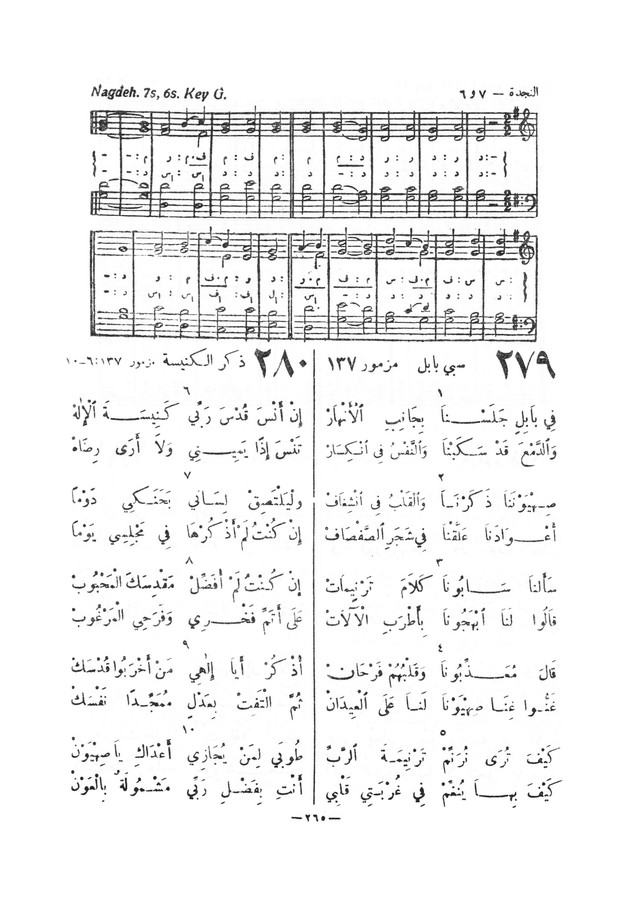 Nagdeh. 7s, 6s. Key G.
النجدة — ٧ و ٦
٢٧٩ سبي بابل مزمور ١٣٧
١
فِي بَابِلٍ جَلَسْـــنَا بِجَانِبِ الْأَنْهَارْ
وَالدَّمْعَ قَدْ سَـكَبْنَا وَالنَّفْسُ فِي انْكِسَارْ
٢
صِهْيَوْنَنَا ذَكَرْنَــا وَالقَلْبُ فِي انْشِغَافْ
أَعْــوَادَنَا عَلَّقْنَا فِي شَجَرِ الصَّفْصَافْ
٣
سَأَلَنَا سَــــابُونَا كَلَامَ تَرْنِيمَاتْ
قَالُوا لَنَا ابْهِجُونَا بِأَطْرَبِ الْآلَاتْ
٤
قَالَ مُعَــذِّبُونَا وَقَلْبُهُمْ فَرْحَانْ
غَنُّــوا غِنَا صِهْيَوْنَا لَنَــا عَلَى الْعِيدَانْ
٥
كَيْفَ تُرَى نُرَنِّمْ تَرْنِيمَـةَ الرَّبِّ
كَيْفَ بِهَــــا يُنَغِّمْ فِي غُرْبَتِي قَلْبِي
٢٨٠ ذكر الكنيسة مزمور ١٣٧:٦-١٠
٦
إِنْ أَنْسَ قُدْسَ رَبِّي كَنِيسَــــةَ الْإِلٰهْ
تَنْسَ إِذًا يَمِيــــنِي وَلَا أَرَى رِضَاهْ
٧
وَلْيَلْتَصِقْ لِسَانِي بَحَنَـكِي دَوْمًا
إِنْ كُنْتُ لَمْ أَذْكُرْهَا فِي مَجْلِسِي يَوْمًا
٨
إِنْ كُــنْتُ لَمْ أُفَضِّلْ مَقْدِسَكَ الْمَحْبُوبْ
عَلَى أَتَمِّ فَخْـــرِي وَفَرَحِي الْمَرْغُوبْ
٩
أُذْكُرْ أَيَا إِلٰهِي مَنْ أَخْرَبُوا قُدْسَكْ
ثُمَّ الْتَفِتْ بِعَدْلٍ مُمَجِّــدًا نَفْسَكْ
١٠
طُوبَى لِمَنْ يُجَازِي أَعْدَاكِ يَا صِهْيَوْنْ
أَنْتِ بِفَضْــلِ رَبِّي مَشْـمُولَةٌ بِالْعَوْنْ
—٢٦٥—